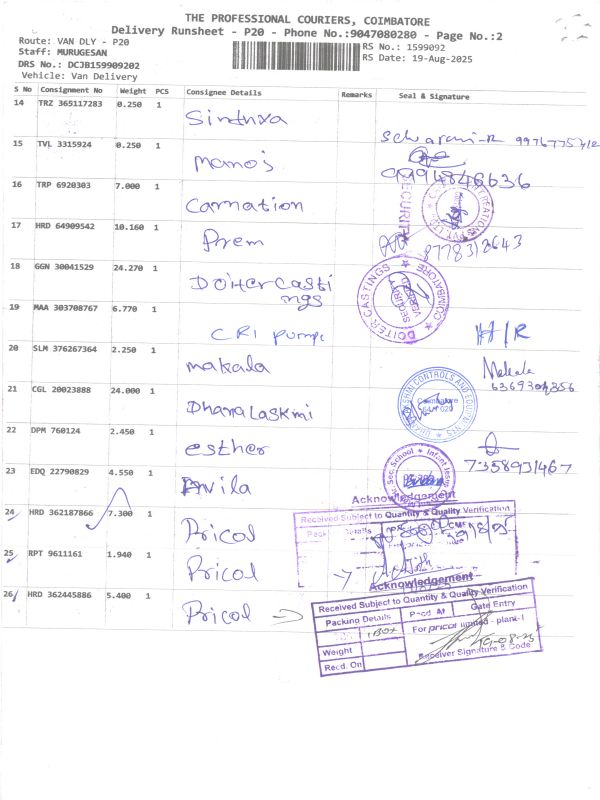 THE PROFESSIONAL COURIERS, COIMBATORE
Delivery Runsheet - P20 - Phone No.:9047080280 - Page No.:2
Route: VAN DLY - P20
Staff: MURUGESAN
RS No.: 1599092
DRS No.: DCJB159909202
RS Date: 19-Aug-2025
Vehicle: Van Delivery
S No Consignment No Weight PCS Consignee Details Remarks Seal & Signature
14 TRZ 365117283 0.250 1 Sindhya
15 TVL 3315924 0.250 1 Manoj
9994846636
16 TRP 6920303 7.000 1 Carnation
SECURITY
17 HRD 64909542 10.160 1 Prem
8778313643
18 GGN 30041529 24.270 1 Doiter casti
ngs
DOITER CASTINGS COIMBATORE
SECURITY
19 MAA 303708767 6.770 1 CRI Pumps
20 SLM 376267364 2.250 1 makala
21 CGL 20023888 24.000 1 Dhanalaskmi
Coimbatore
22 DPM 760124 2.450 1 esther
7358931467
23 EDQ 22790829 4.550 1 Avila
24 HRD 362187866 7.300 1 Pricol
Acknowledgement
Received Subject to Quantity & Quality Verification
25 RPT 9611161 1.940 1 Pricol
26 HRD 362445886 5.400 1 Pricol
Acknowledgement
Received Subject to Quantity & Quality Verification
Packing Details Recd. At Gate Entry
1 Box For pricol limited - plant-1
Weight
19-08-25
Recd. On Receiver Signature & Code